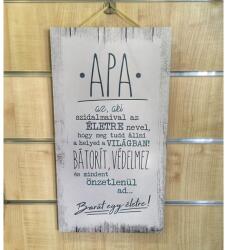 • APA •
az, aki
szidalmaival az
ÉLETRE nevel,
hogy meg tudd állni
a helyed a VILÁGBAN!
BÁTORÍT, VÉDELMEZ
és mindent
önzetlenül
ad...
Barát egy életre!